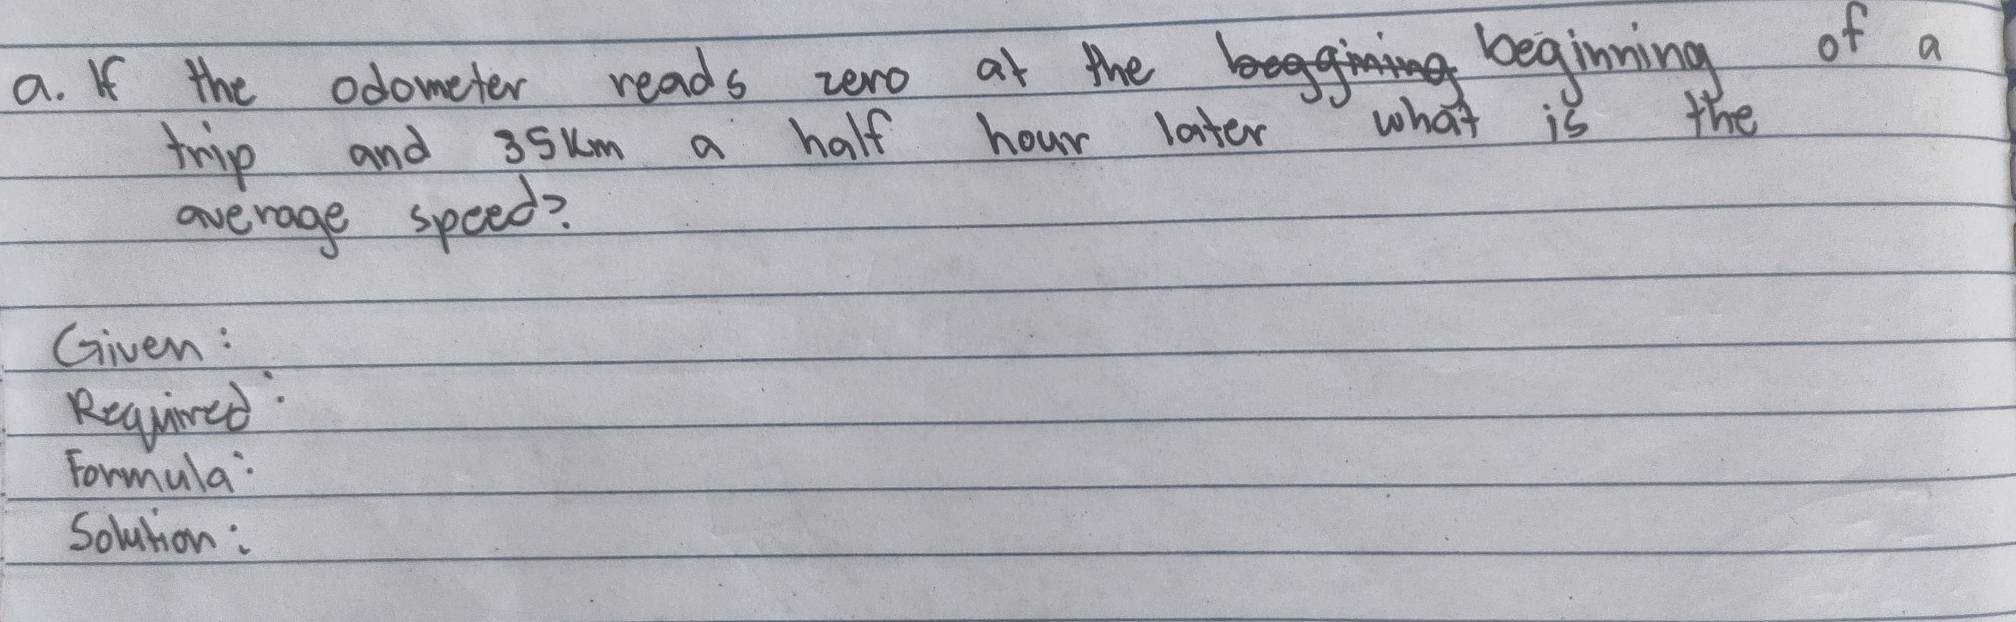 a. If the odometer reads zero at the beggining beginning of a
trip and 35km a half hour later what is the
average speed?
Given:
Required:
Formula:
Solution: